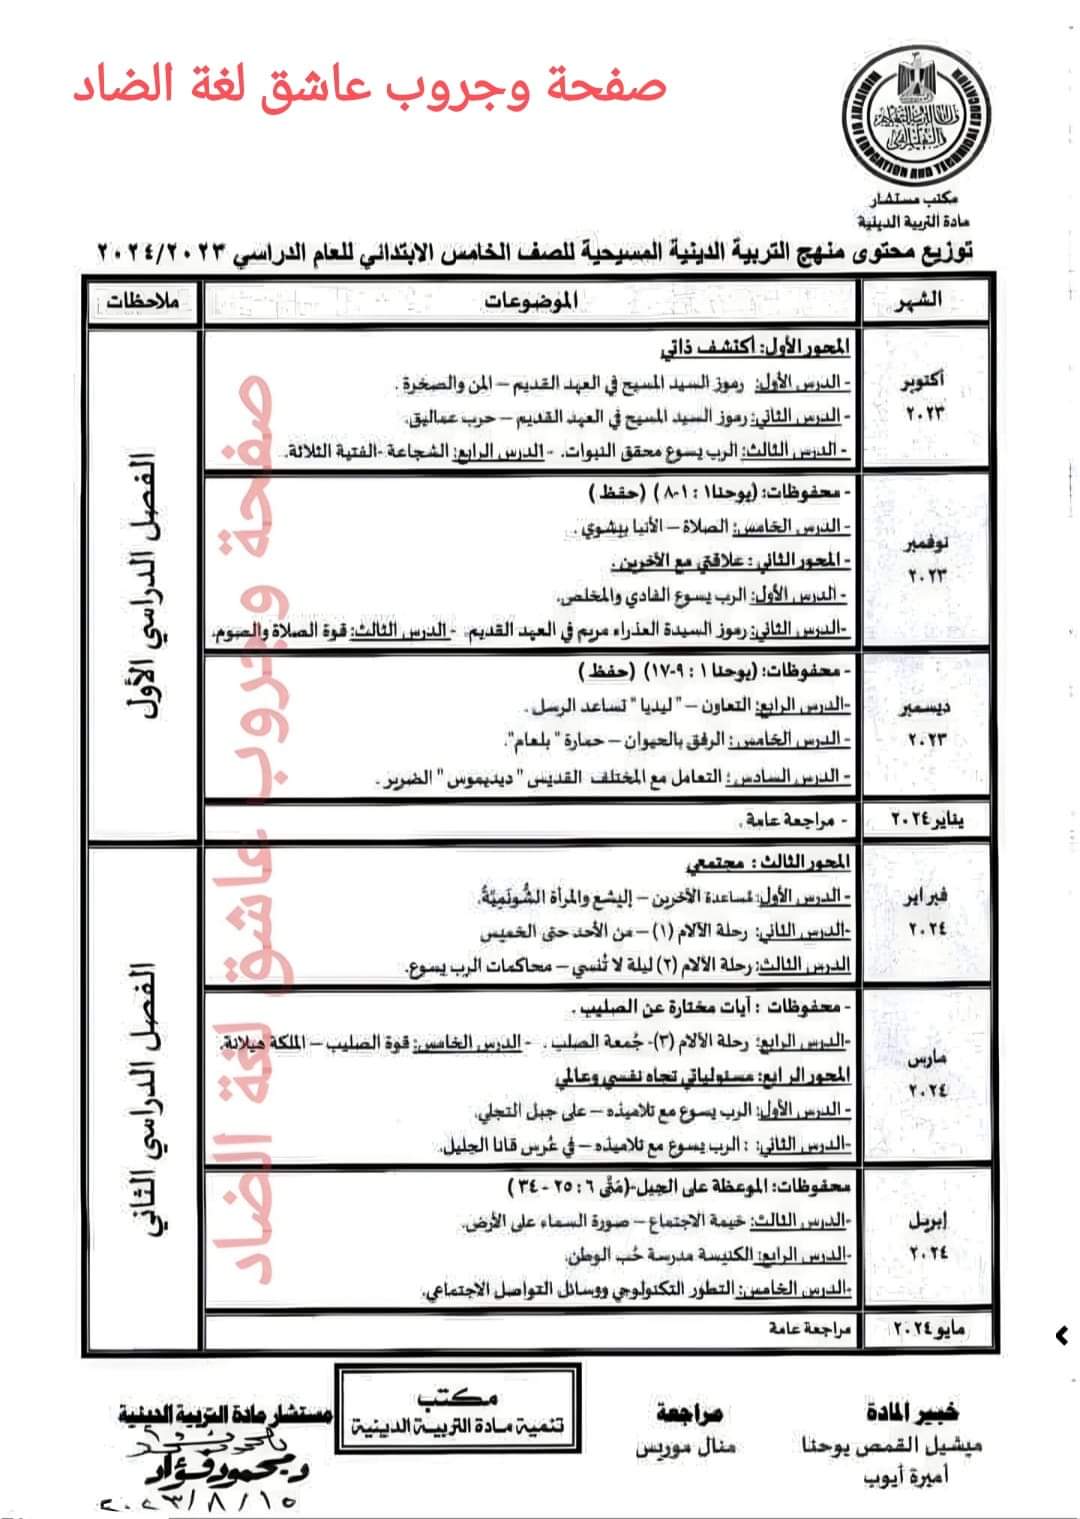 صفحة وجروب عاشق لغة الضاد
MINISTRY OF EDUCATION AND TECHNICAL EDUCATION
مكتب مستشار
مادة التربية الدينية
توزيع محتوى منهج التربية الدينية المسيحية للصف الخامس الابتدائي للعام الدراسي ٢٠٢٤/٢٠٢٣
الشهر الموضوعات ملاحظات
أكتوبر
٢٠٢٣
المحور الأول: أكتشف ذاتي
- الدرس الأول: رموز السيد المسيح في العهد القديم – المن والصخرة .
- الدرس الثاني: رموز السيد المسيح في العهد القديم – حرب عماليق.
- الدرس الثالث: الرب يسوع محقق النبوات. - الدرس الرابع: الشجاعة -الفتية الثلاثة.
نوفمبر
٢٠٢٣
- محفوظات: (يوحنا١ : ١-٨ ) (حفظ )
- الدرس الخامس: الصلاة – الأنبا بيشوي .
- المحور الثاني : علاقتي مع الآخرين .
- الدرس الأول: الرب يسوع الفادي والمخلص.
-الدرس الثاني: رموز السيدة العذراء مريم في العهد القديم. - الدرس الثالث: قوة الصلاة والصوم.
ديسمبر
٢٠٢٣
- محفوظات: (يوحنا ١ : ٩-١٧) (حفظ )
-الدرس الرابع: التعاون – "ليديا "تساعد الرسل .
- الدرس الخامس: الرفق بالحيوان – حمارة " بلعام".
- الدرس السادس: التعامل مع المختلف القديس " ديديموس" الضرير .
يناير ٢٠٢٤
- مراجعة عامة .
الفصل الدراسي الأول
فبراير
٢٠٢٤
المحور الثالث : مجتمعي
- الدرس الأول: مُساعدة الآخرين – إليشع والمرأة الشُّونَمِيَّةُ.
-الدرس الثاني: رحلة الآلام (١) – من الأحد حتى الخميس
الدرس الثالث: رحلة الآلام (٢) ليلة لا تُنسي – محاكمات الرب يسوع.
مارس
٢٠٢٤
- محفوظات : آيات مختارة عن الصليب .
-الدرس الرابع: رحلة الآلام (٣)- جُمعة الصلب . - الدرس الخامس: قوة الصليب – الملكة هيلانة.
المحور الرابع: مسئولياتي تجاه نفسي وعالمي
- الدرس الأول: الرب يسوع مع تلاميذه – على جبل التجلي.
- الدرس الثاني: : الرب يسوع مع تلاميذه – في عُرس قانا الجليل.
إبريل
٢٠٢٤
محفوظات: الموعظة على الجبل-(مَتَّى ٦ : ٢٥ - ٣٤ )
-الدرس الثالث: خيمة الاجتماع – صورة السماء على الأرض.
-الدرس الرابع: الكنيسة مدرسة حُب الوطن.
-الدرس الخامس: التطور التكنولوجي ووسائل التواصل الاجتماعي.
مايو ٢٠٢٤
مراجعة عامة
الفصل الدراسي الثاني
صفحة وجروب عاشق لغة الضاد
خبير المادة
ميشيل القمص يوحنا
أميرة أيوب
مراجعة
منال موريس
مكتب
تنمية مادة التربية الدينية
مستشار مادة التربية الدينية
د. محمود فؤاد
٢٠٢٣/٨/١٥